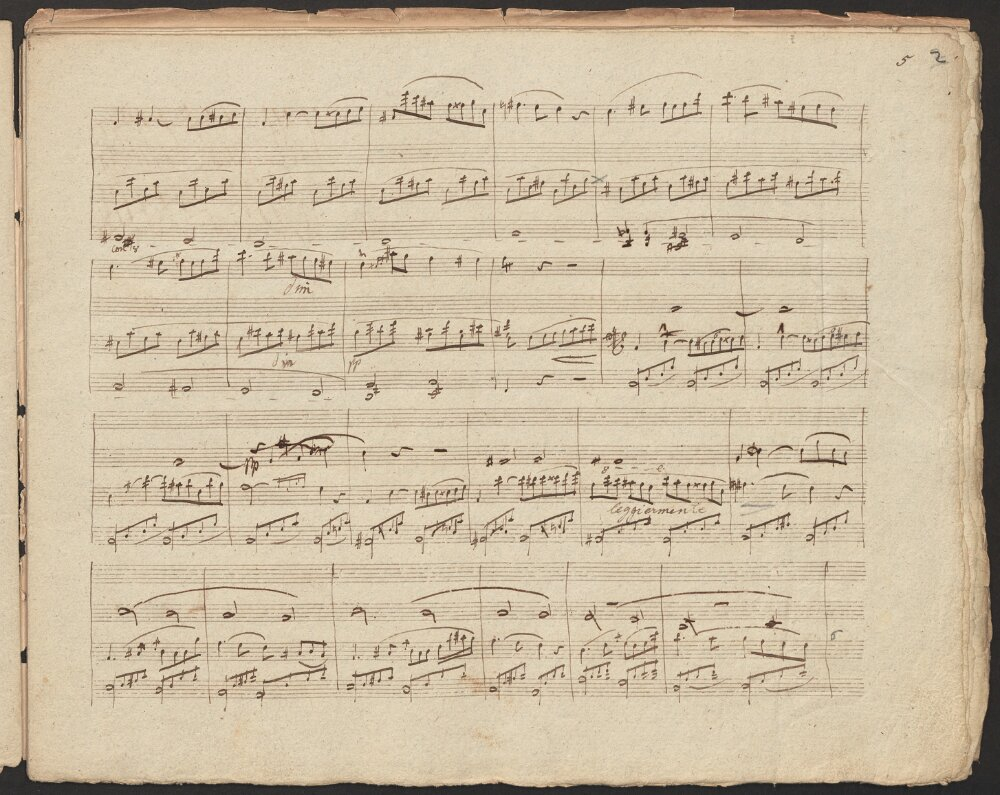 5 2
con 8
dim
dim
pp
pp
8
leggiermente
6